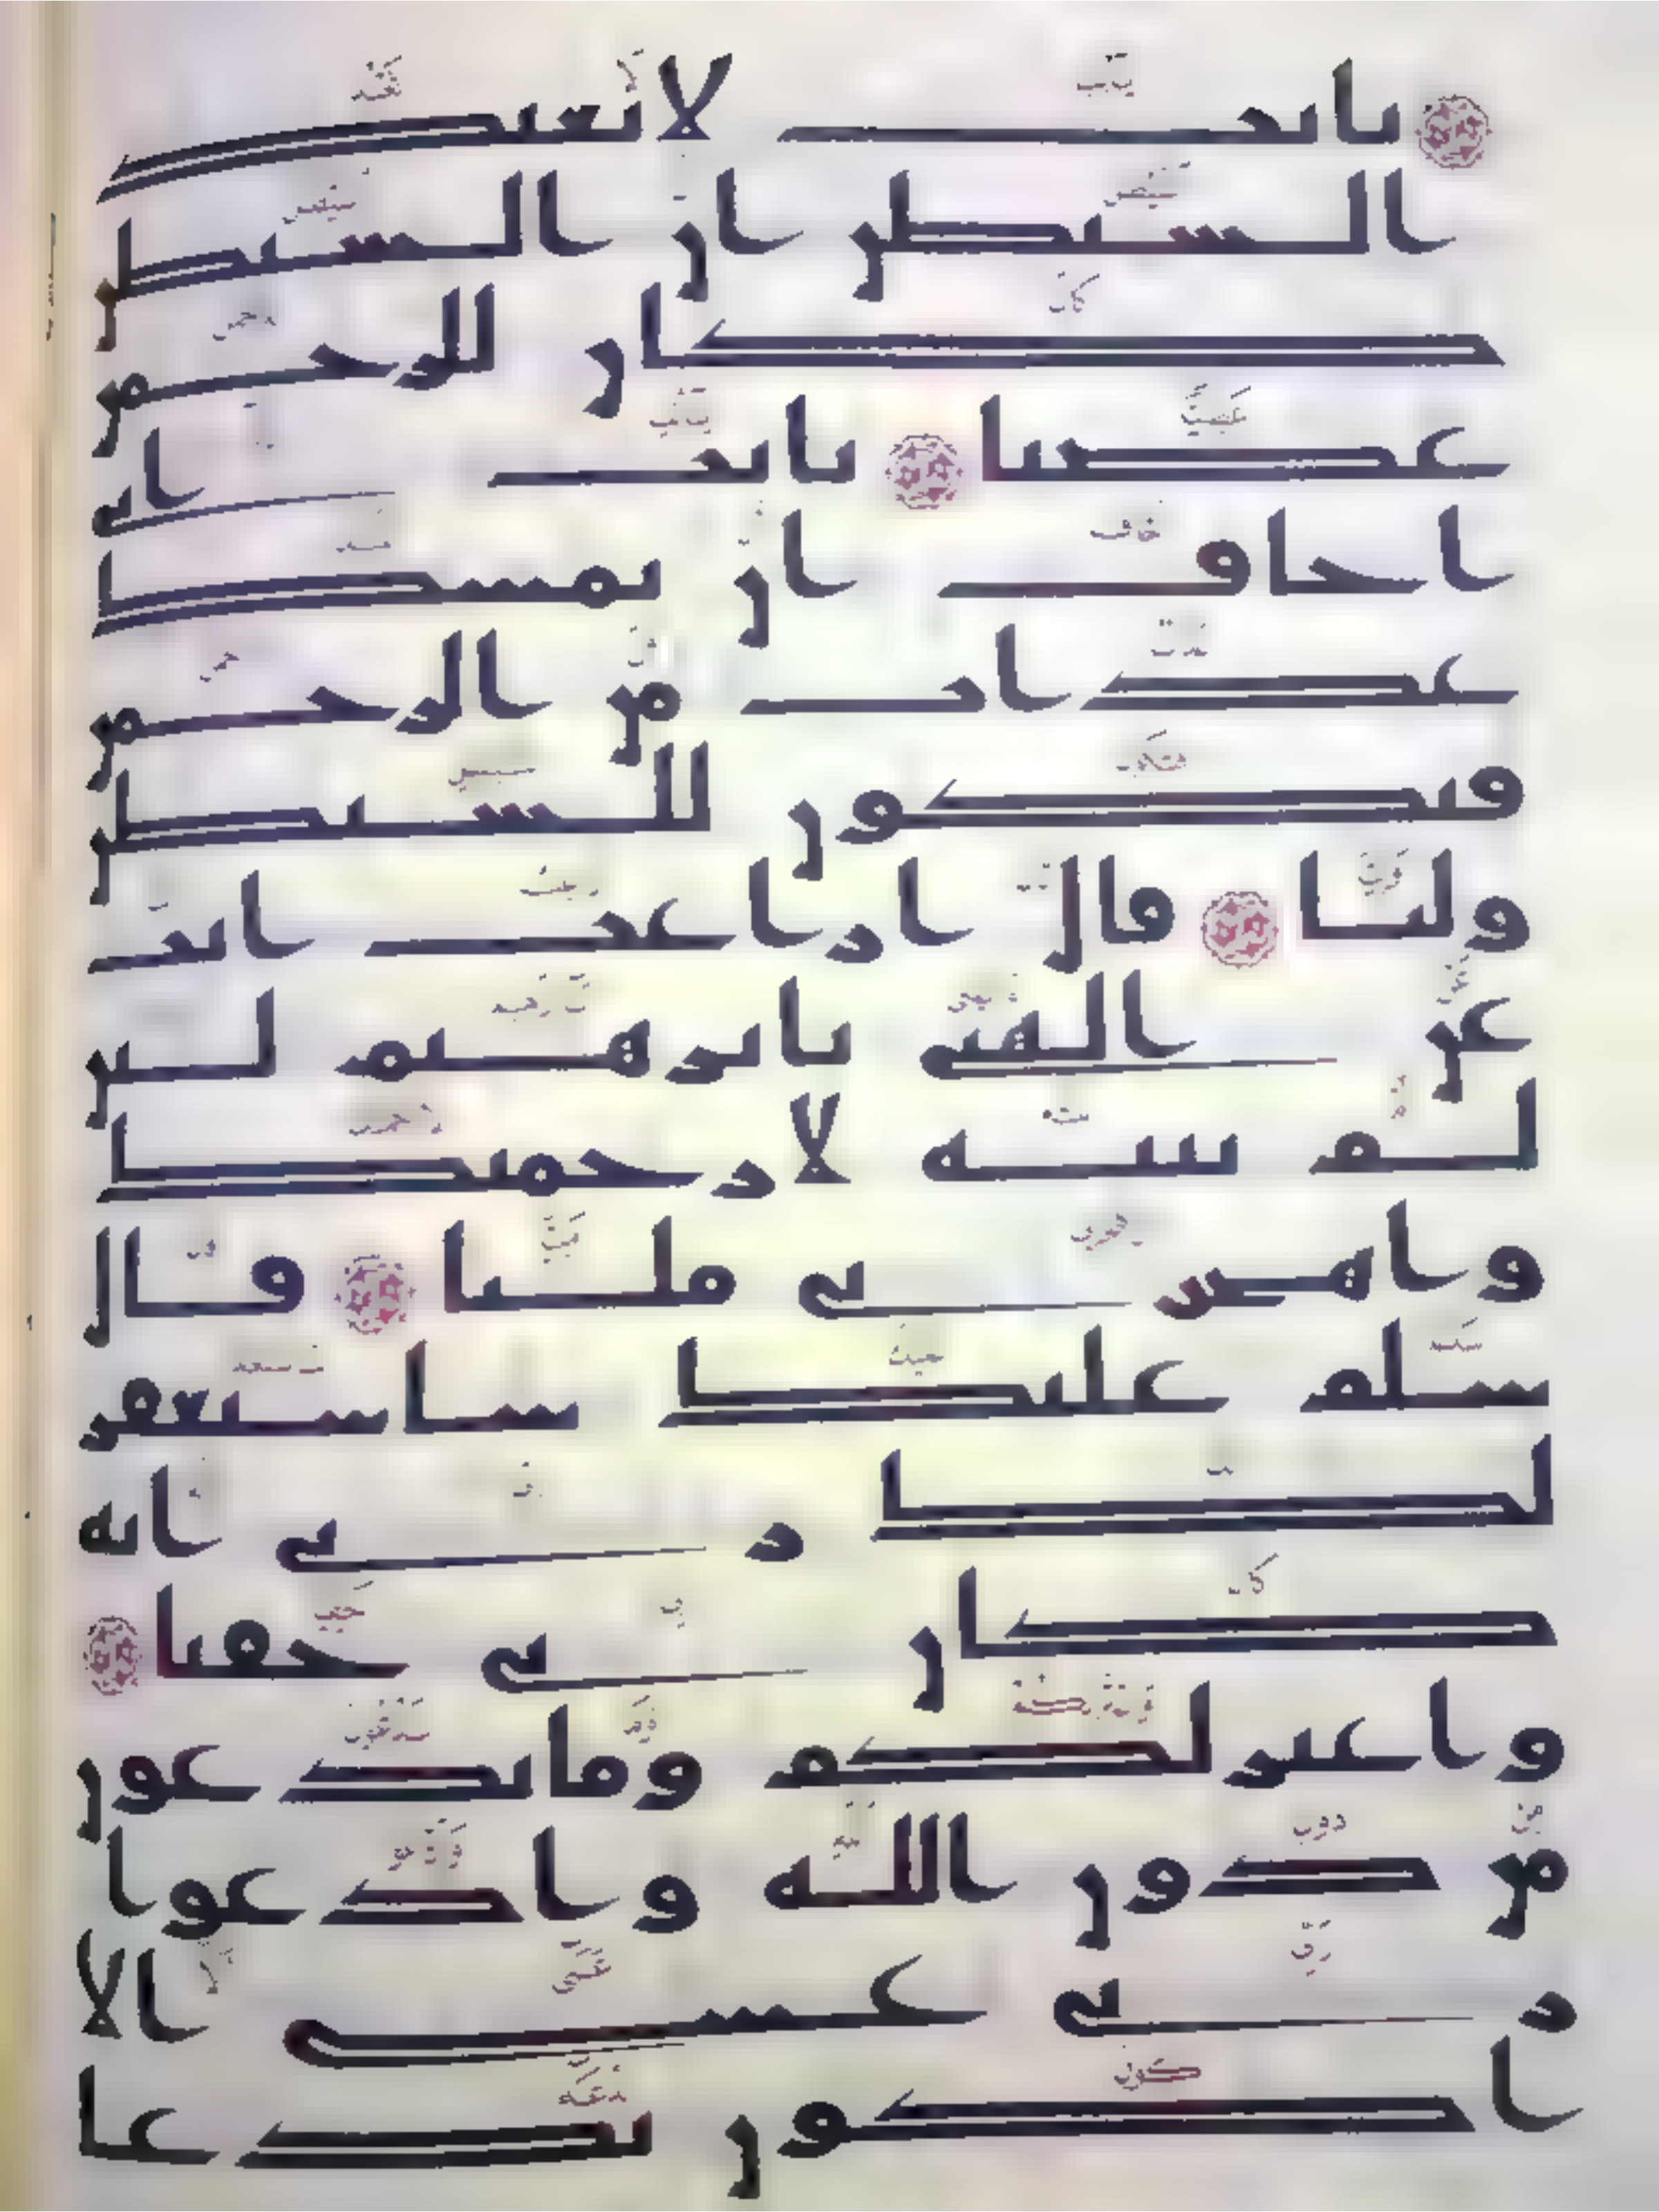 يابت لا تعبد
الشيطن ان الشيطن
كان للرحمن
عصيا يابت اني
اخاف ان يمسك
عذاب من الرحمن
فتكون للشيطن
وليا قال اراغب انت
عن الهتي يابرهيم لئن
لم تنته لارجمنك
واهجرني مليا قال
سلم عليك ساستغفر
لك ربي انه
كان بي حفيا
واعتزلكم وما تدعون
من دون الله وادعوا
ربي عسى الا
اكون بدعا